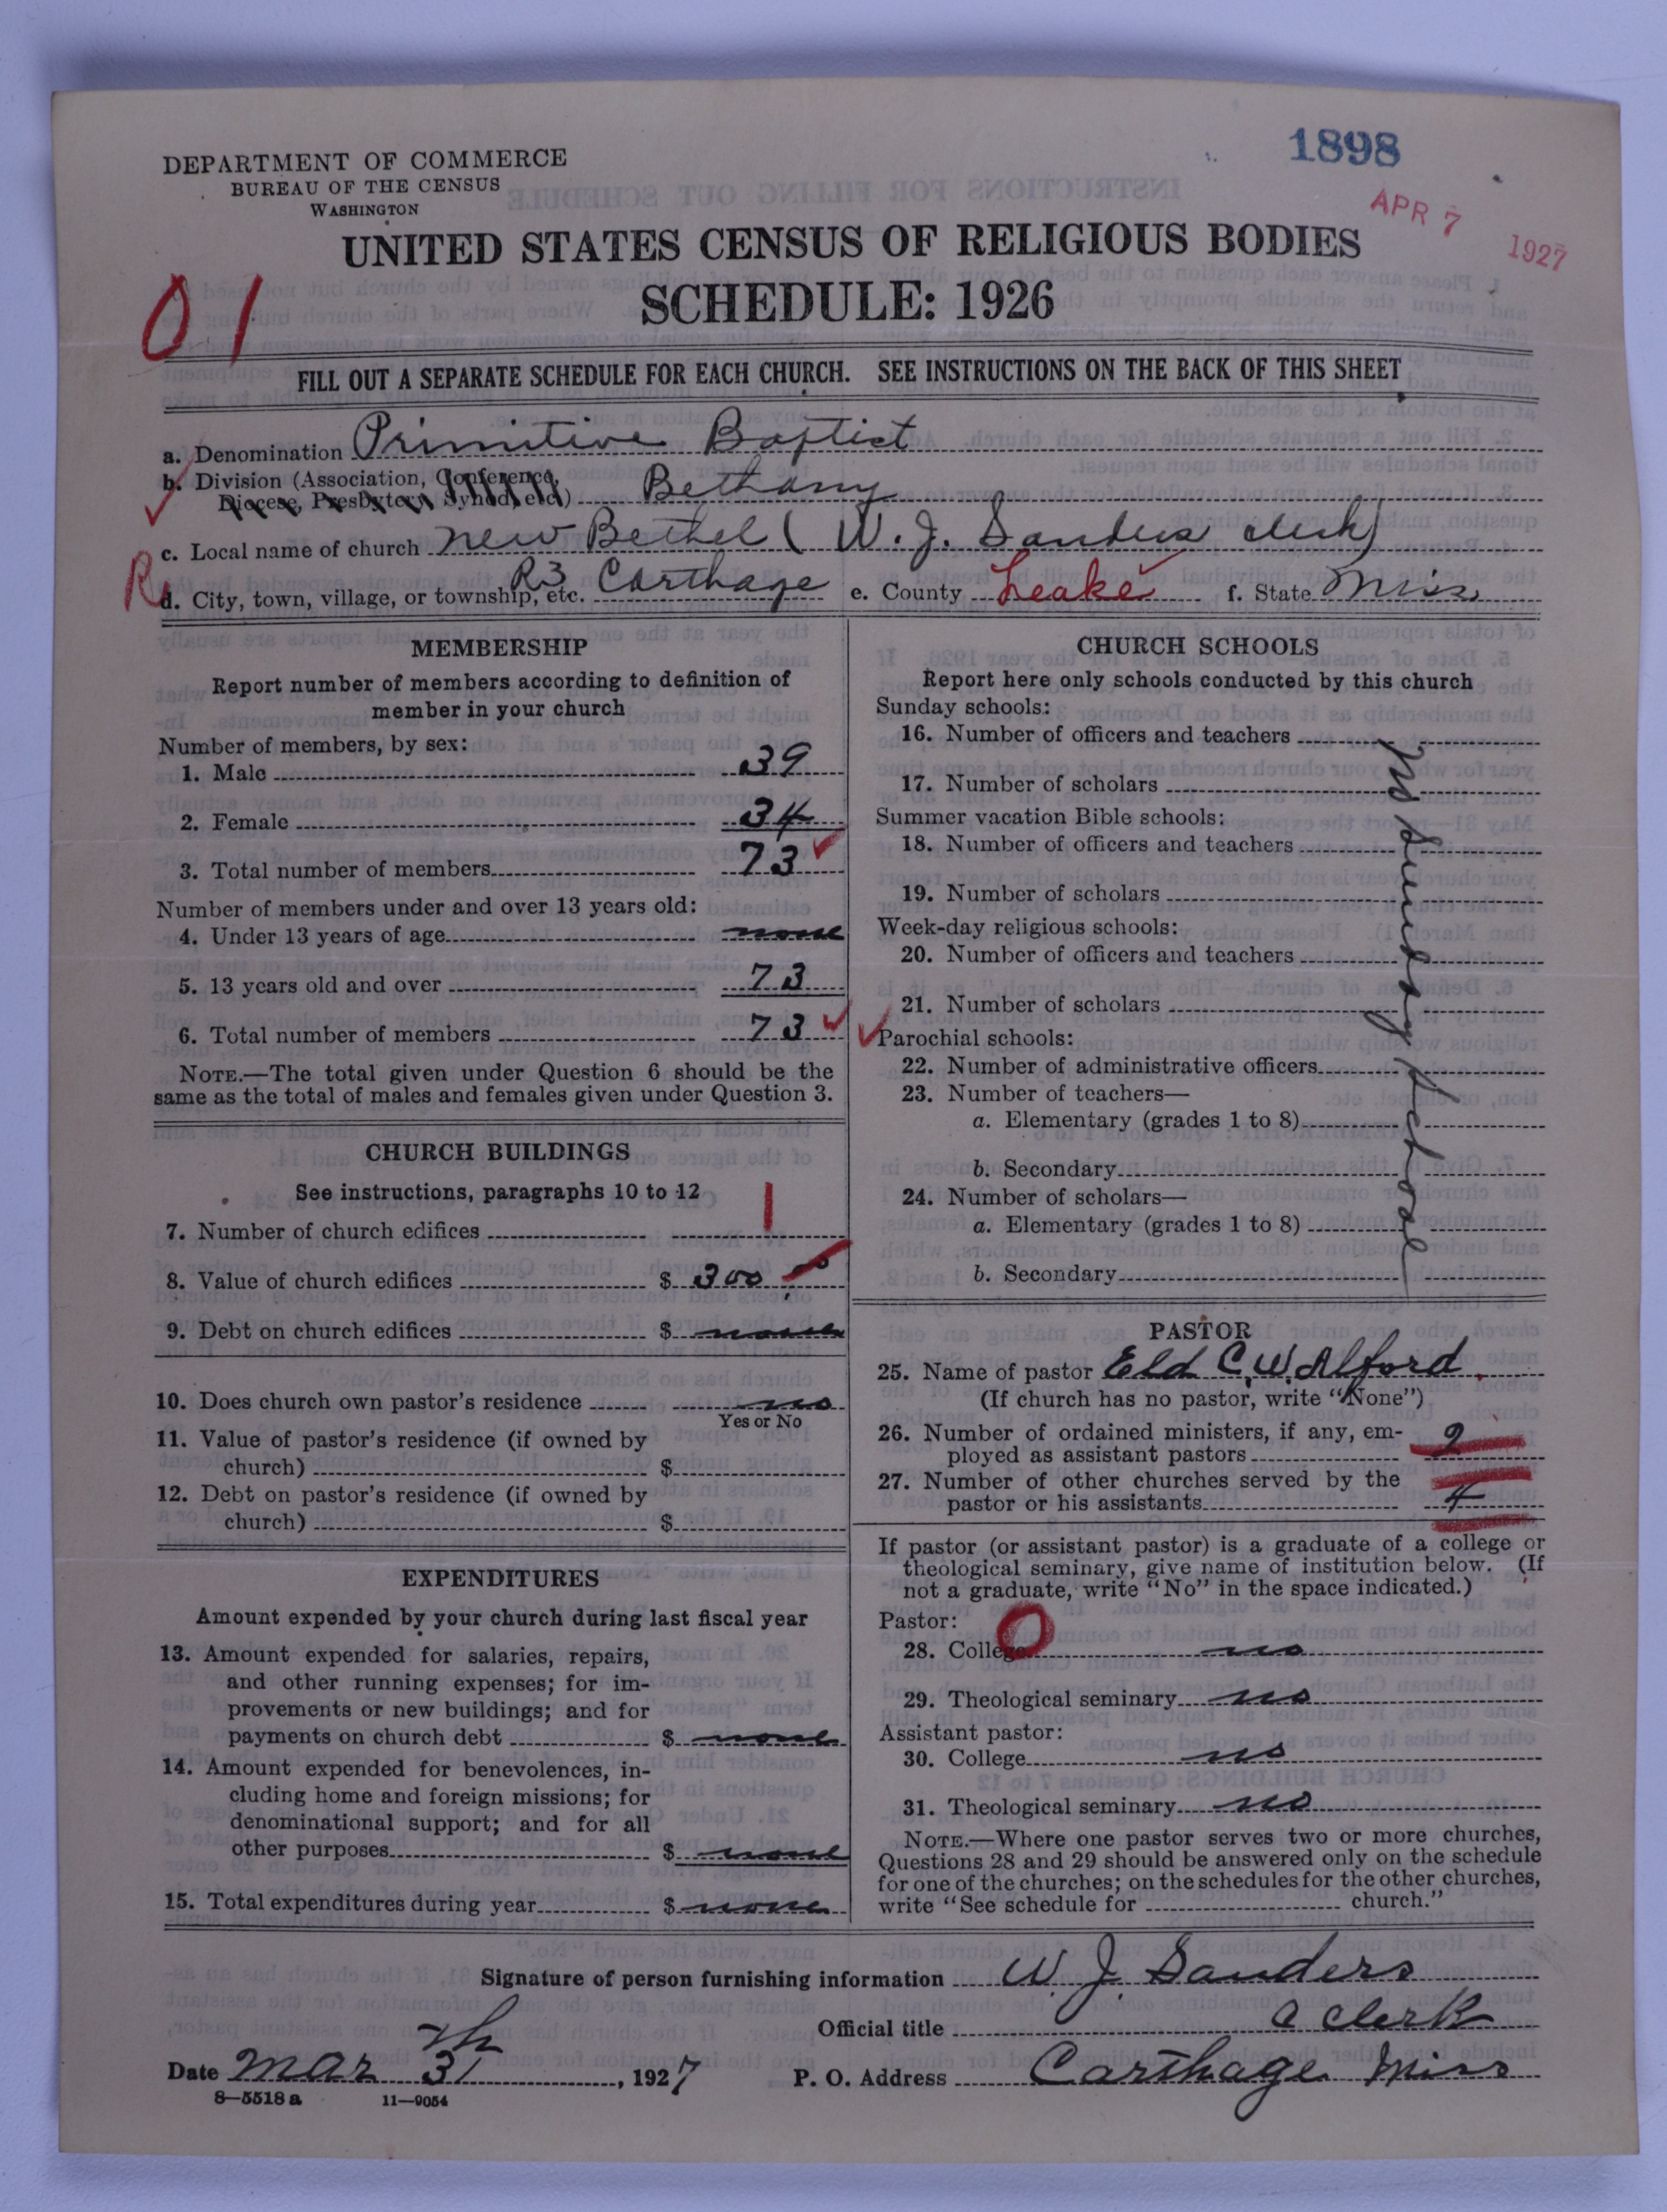 1898
APR 7 1927
DEPARTMENT OF COMMERCE
BUREAU OF THE CENSUS
WASHINGTON
UNITED STATES CENSUS OF RELIGIOUS BODIES
SCHEDULE: 1926
01
FILL OUT A SEPARATE SCHEDULE FOR EACH CHURCH. SEE INSTRUCTIONS ON THE BACK OF THIS SHEET
a. Denomination Primitive Baptist
b. Division (Association, Conference,
Diocese, Presbytery, Synod, etc.) Bethany
c. Local name of church new Bethel ( W. J. Sanders clerk)
R
d. City, town, village, or township, etc. R3 Carthage e. County Leake f. State Miss
MEMBERSHIP
Report number of members according to definition of
member in your church
Number of members, by sex:
1. Male 39
2. Female 34
3. Total number of members 73
Number of members under and over 13 years old:
4. Under 13 years of age none
5. 13 years old and over 73
6. Total number of members 73
NOTE.—The total given under Question 6 should be the
same as the total of males and females given under Question 3.
CHURCH BUILDINGS
See instructions, paragraphs 10 to 12
7. Number of church edifices 1
8. Value of church edifices $ 300
9. Debt on church edifices $ none
10. Does church own pastor's residence no
Yes or No
11. Value of pastor's residence (if owned by
church) $
12. Debt on pastor's residence (if owned by
church) $
EXPENDITURES
Amount expended by your church during last fiscal year
13. Amount expended for salaries, repairs,
and other running expenses; for im-
provements or new buildings; and for
payments on church debt $ none
14. Amount expended for benevolences, in-
cluding home and foreign missions; for
denominational support; and for all
other purposes $ none
15. Total expenditures during year $ none
CHURCH SCHOOLS
Report here only schools conducted by this church
Sunday schools:
16. Number of officers and teachers
17. Number of scholars
Summer vacation Bible schools:
18. Number of officers and teachers
19. Number of scholars
Week-day religious schools:
20. Number of officers and teachers
21. Number of scholars
Parochial schools:
22. Number of administrative officers
23. Number of teachers—
a. Elementary (grades 1 to 8)
b. Secondary
24. Number of scholars—
a. Elementary (grades 1 to 8)
b. Secondary
No Sunday School
PASTOR
25. Name of pastor Eld C. W. Alford
(If church has no pastor, write "None")
26. Number of ordained ministers, if any, em-
ployed as assistant pastors 2
27. Number of other churches served by the
pastor or his assistants 4
If pastor (or assistant pastor) is a graduate of a college or
theological seminary, give name of institution below. (If
not a graduate, write "No" in the space indicated.)
Pastor: 0
28. College no
29. Theological seminary no
Assistant pastor:
30. College no
31. Theological seminary no
NOTE.—Where one pastor serves two or more churches,
Questions 28 and 29 should be answered only on the schedule
for one of the churches; on the schedules for the other churches,
write "See schedule for church."
Signature of person furnishing information W. J. Sanders
Official title C clerk
Date Mar 31th, 1927 P. O. Address Carthage Miss
8—5518 a 11—9054